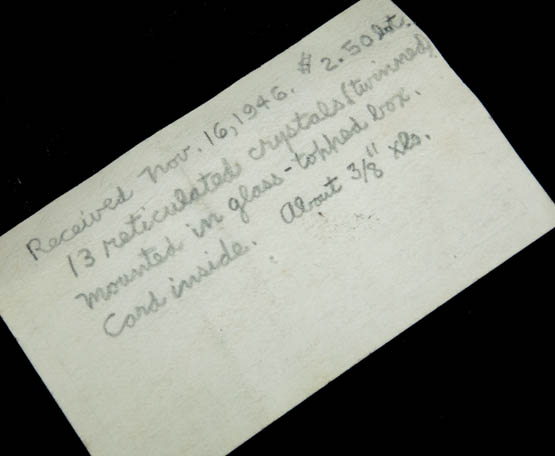 Received Nov. 16, 1946. $2.50 lot.
13 reticulated crystals (twinned)
mounted in glass-topped box.
Card inside. About 3/8" xls.